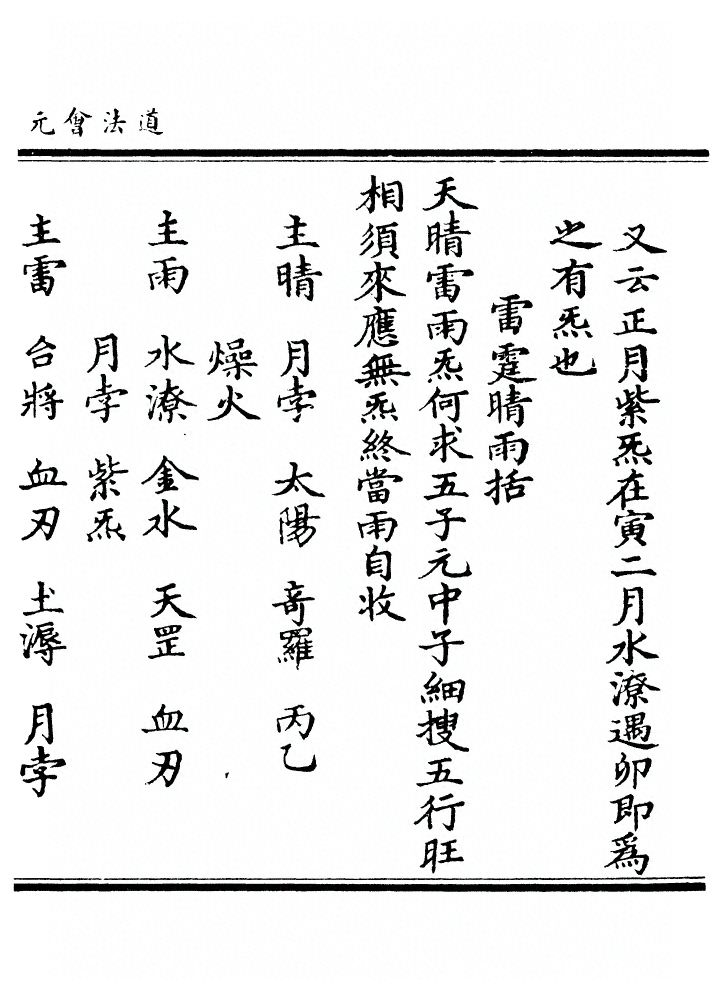 元會法道
又云正月紫炁在寅二月水潦遇卯即爲
之有炁也
雷霆晴雨括
天晴雷雨炁何求五子元中子細搜五行旺
相須來應無炁終當雨自收
主晴 月孛 太陽 奇羅 丙乙
燥火
主雨 水潦 金水 天罡 血刃
月孛 紫炁
主雷 台將 血刃 土溽 月孛